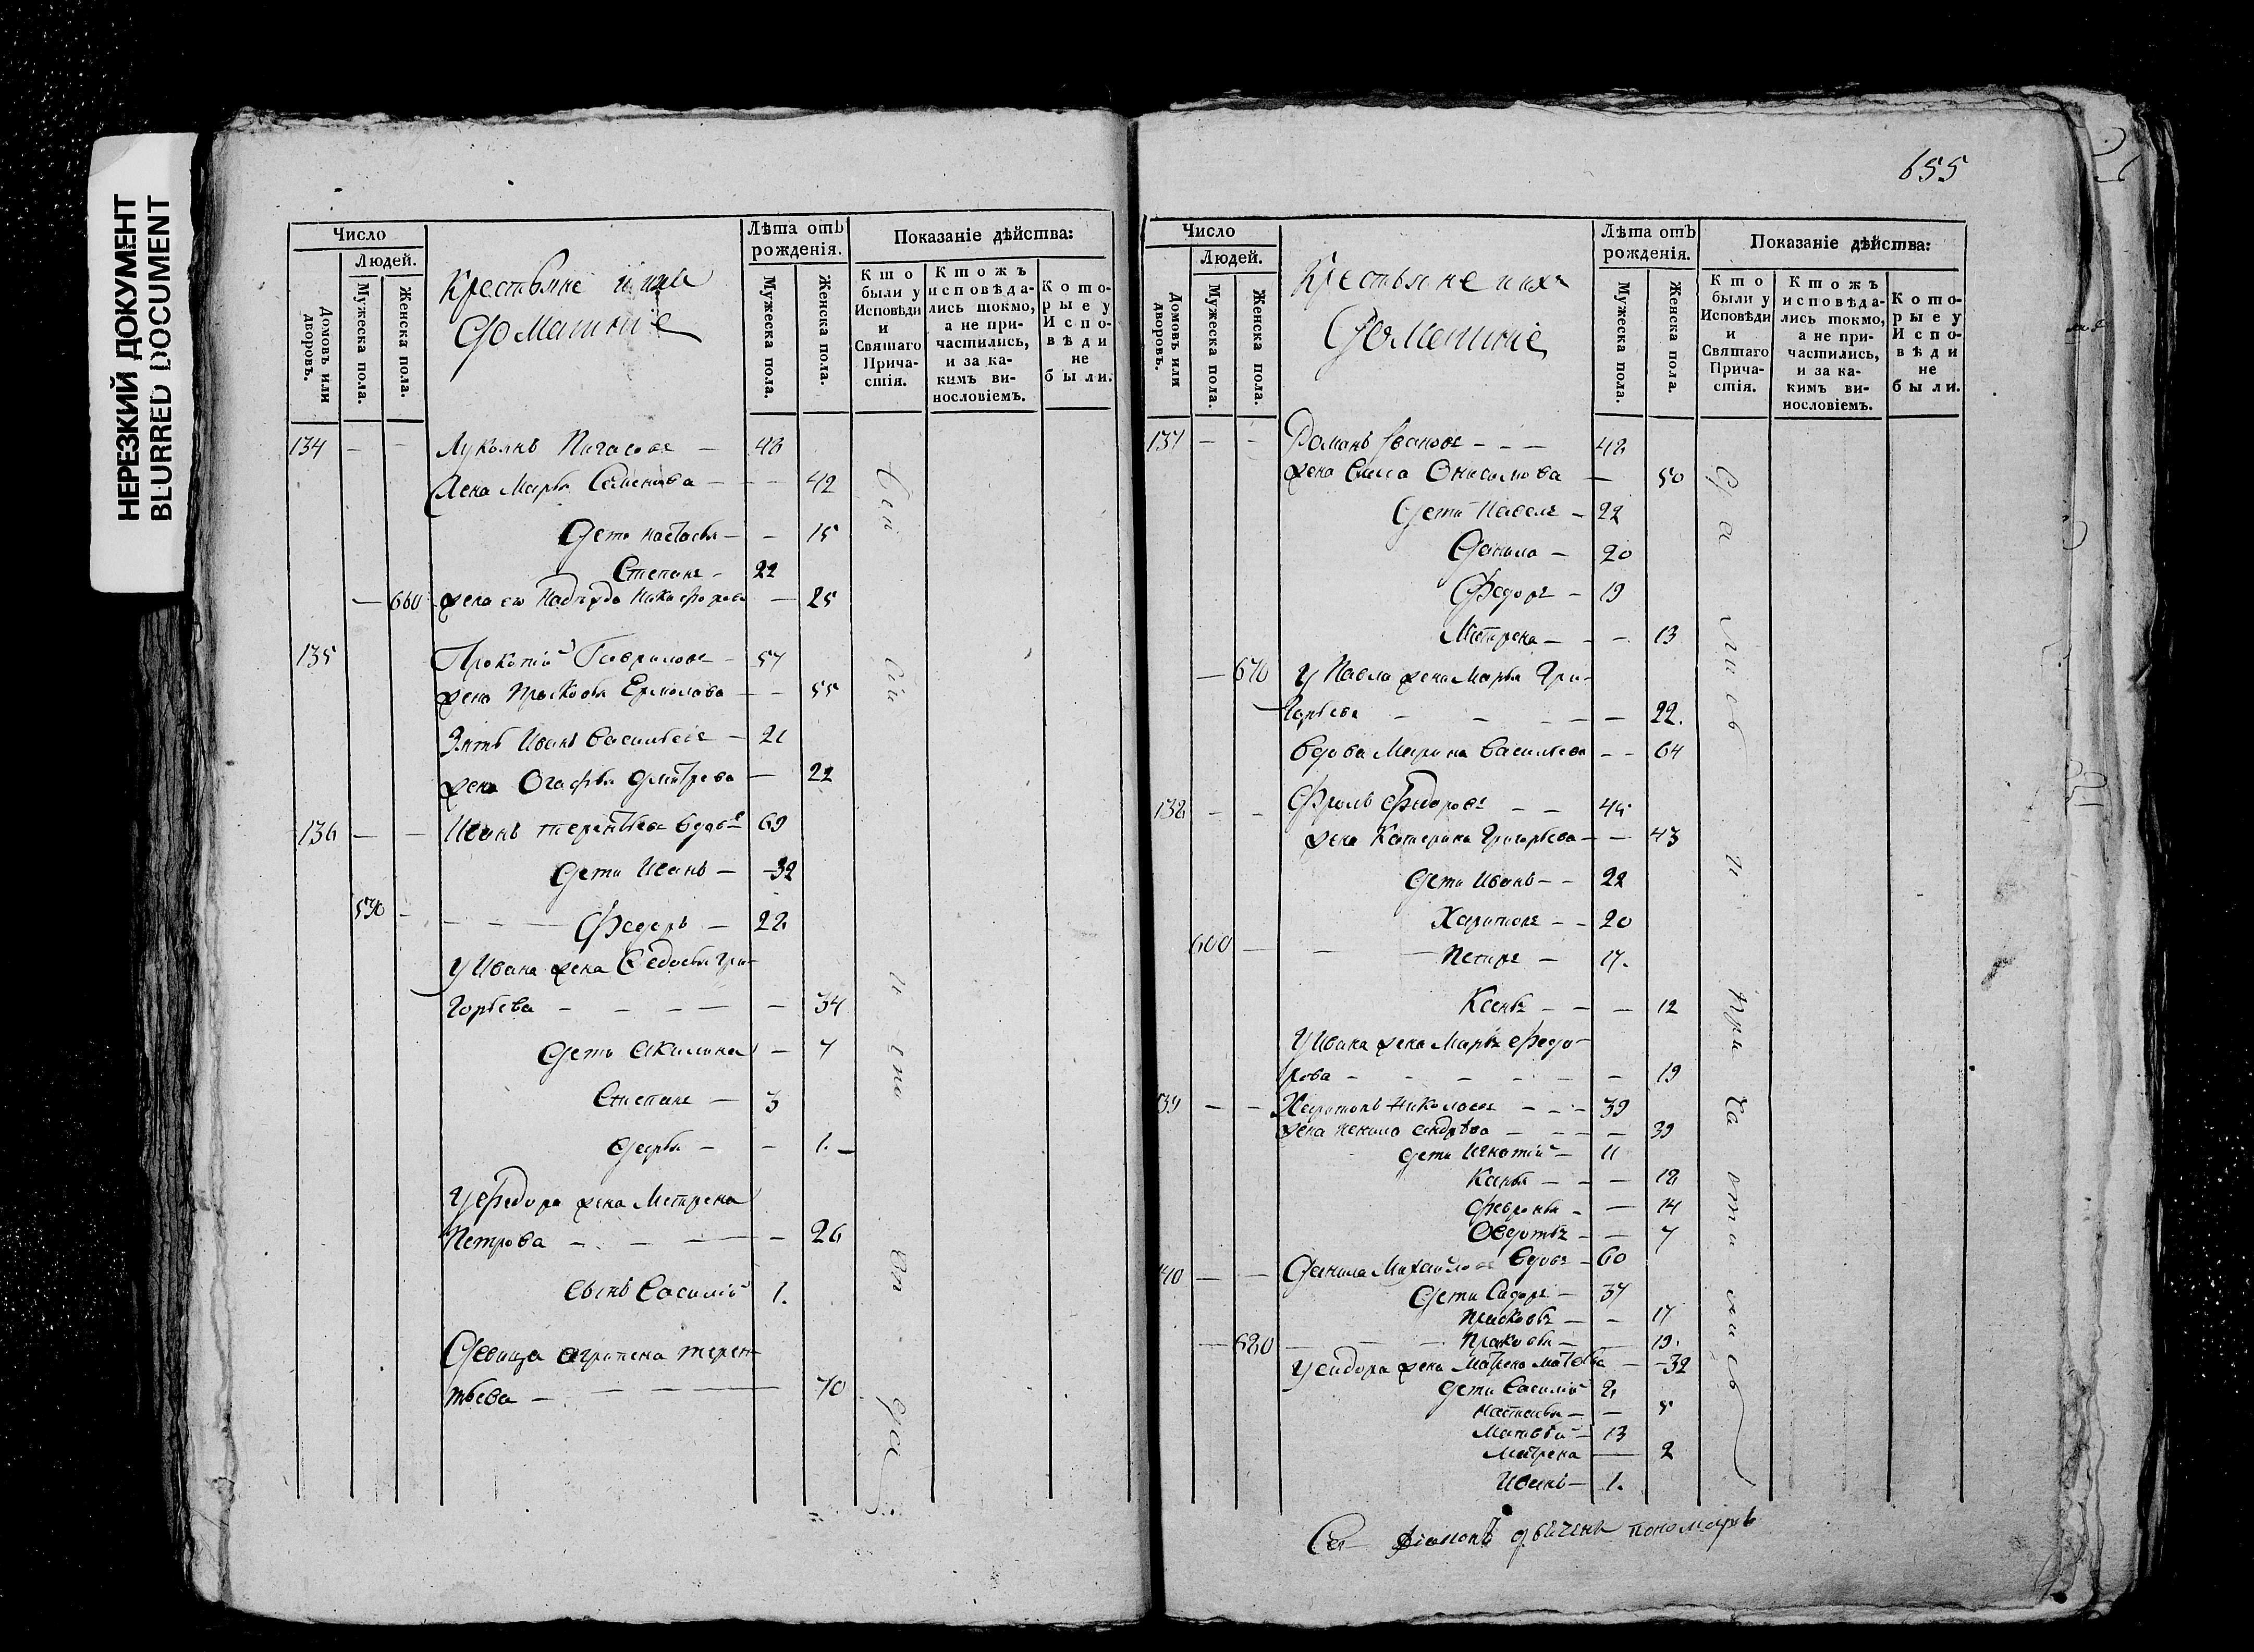 НЕРЕЗКИЙ ДОКУМЕНТ
BLURRED DOCUMENT
Число
Людей.
Домовъ или дворовъ.
Мужеска пола.
Женска пола.
Крестьяне и ихъ
Домашние
Лѣта отъ рожденія.
Мужеска пола.
Женска пола.
Показаніе дѣйства:
Кто были у Исповѣди и Святаго Причастія.
Ктожъ исповѣдались токмо, а не причастились, и за какимъ винословіемъ.
Которые у Исповѣди не были.
134 — — Лукьянъ — 48
Жена Марья Семенова — — 42
Дети Настасья — — 15
Степанъ — 22
— 660 жена ево Надежда Никифорова — 25
135 Прокопий Гавриловъ — 57
жена Прасковья Ермолаева — — 55
Зять Иванъ Васильевъ — 21
жена Огафья Дмитрева — 22
136 — — Иванъ Терентьевъ вдовъ 69
Дети Иванъ — 32
590 — — — — Федоръ — 22
У Ивана жена Федосья Гри-
горьева — — — — — 34
Дети Акилина — 7
Степанъ — 3
Дарья — — 1. —
У Федора жена Матрена
Петрова — — — — — 26
Сынъ Василий 1.
Девица Агрипена Терен-
тьева — — — — 70
655
Число
Людей.
Домовъ или дворовъ.
Мужеска пола.
Женска пола.
Крестьяне и ихъ
Домашние
Лѣта отъ рожденія.
Мужеска пола.
Женска пола.
Показаніе дѣйства:
Кто были у Исповѣди и Святаго Причастія.
Ктожъ исповѣдались токмо, а не причастились, и за какимъ винословіемъ.
Которые у Исповѣди не были.
137 — — Романъ Ивановъ — — — 48
жена Онисимова — 50
Дети Павелъ — 22
Данила — 20
Федоръ — 19
Матрена — — — 13
— 670 У Павла жена Марья Гри-
горьева — — — — — 22.
вдова Марина Васильева — — 64
138 — — Фролъ Федоровъ — — 45
жена Катерина Григорьева — — 43
Дети Иванъ — — 22
Харитонъ — — 20
600 — — — Петръ — 17.
Ксенья — — — 12
У Ивана жена Марья Федо-
рова — — — — — — 19
139 — — Харитонъ Николаевъ — — — 39
жена — — — — 39
дети Игнатий — 11
Ксенья — — — 18
Февронья — — 14
Овдотья — — 7
140 — — Данила Михайловъ вдовъ — 60
Дети Сидоръ — 37
Прасковья — — 17
— 680 — — — Прасковья — — 19.
У Сидора жена Матрена — 32
дети Василий 2
Настасья — — 5
Матвѣй — 13
Матрена — 2
Иванъ — 1.
пономарь